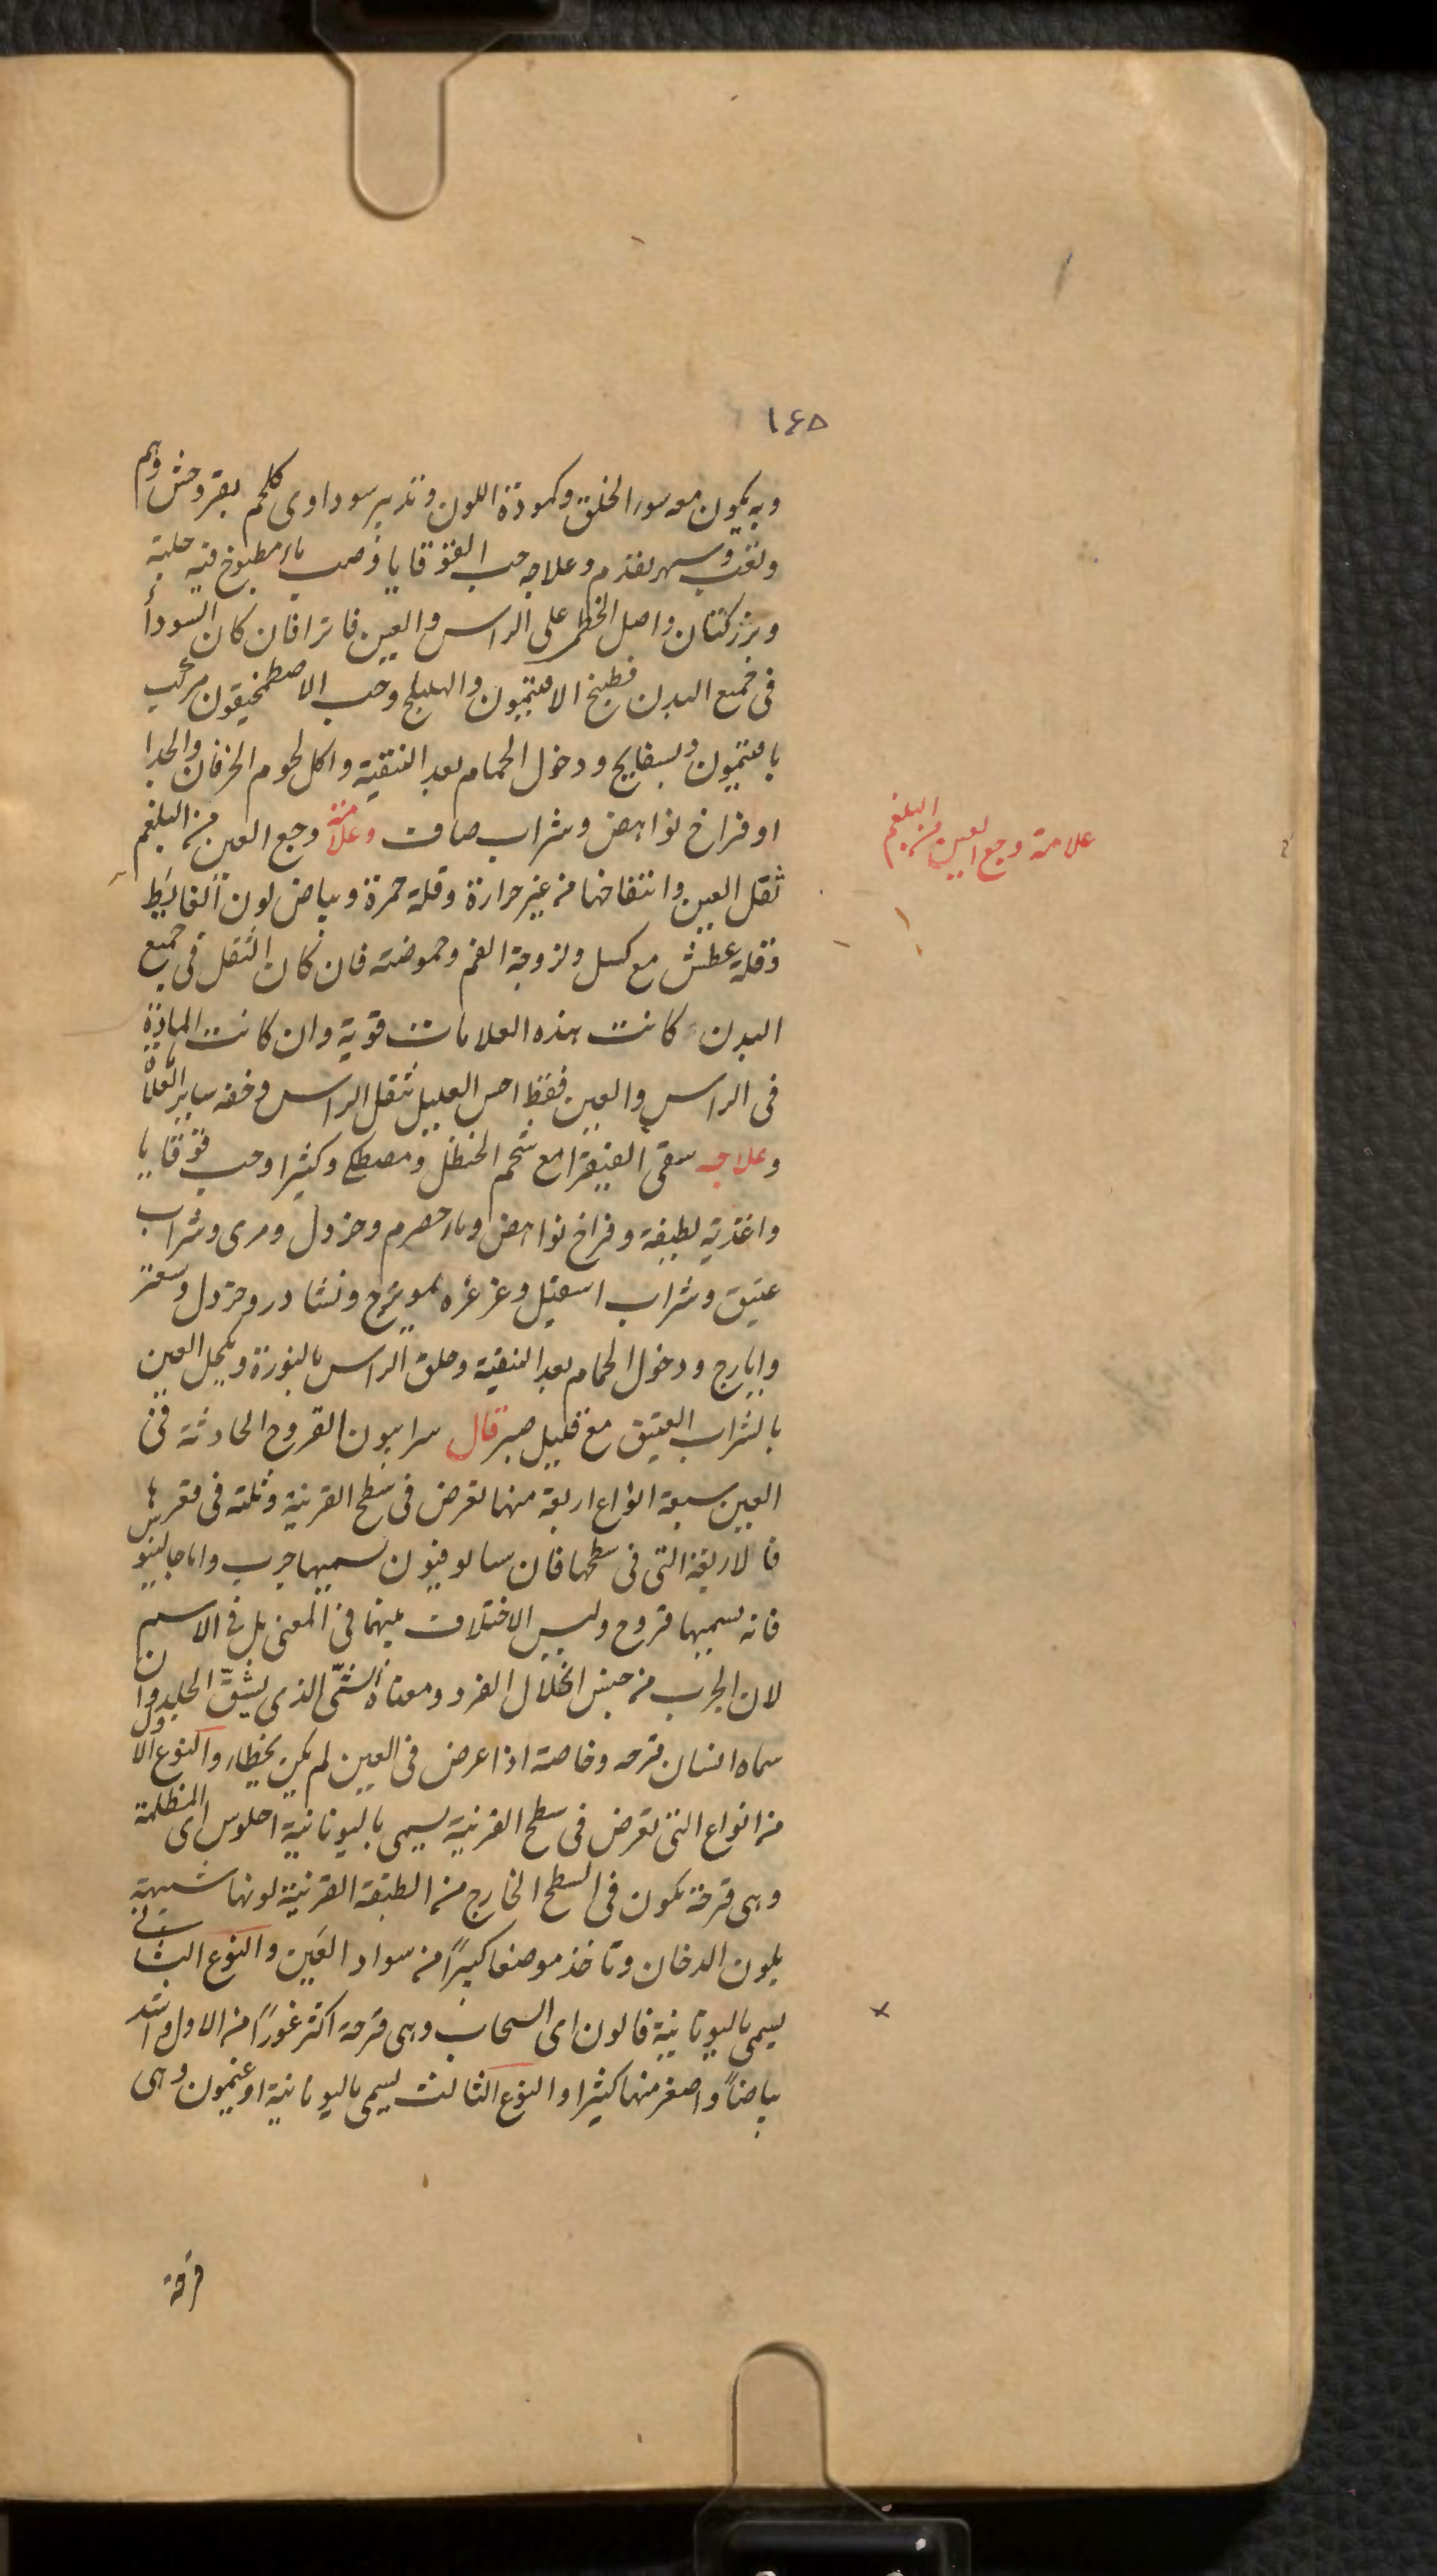 ١٦٥
وبه يكون معه سوء الخلق وكمودة اللون وتدبير سوداوى كلحم بقر وحش وهم
وتعب وسهر تقدم وعلاجه حب القوقايا وصب ماء مطبوخ فيه حلبة
وبزر كتان واصل الخطمى على الراس والعين فاترا فان كان السوداء
فى جميع البدن فطبخ الافتيمون والهليلج وحب الاصطمخيقون مركب
بافتيمون وبسفايج ودخول الحمام بعد التنقية واكل لحوم الخرفان والجدا
او فراخ نواهض وشراب صاف وعلامة وجع العين من البلغم
علامة وجع العين من البلغم
ثقل العين وانتفاخها من غير حرارة وقلة حمرة وبياض لون الغايط
وقلة عطش مع كسل ولزوجة الفم وحموضته فان كان الثقل فى جميع
البدن كانت هذه العلامات قوية وان كانت المادة
فى الراس والعين فقط احس العليل بثقل الراس وخفه ساير العلا
وعلاجه سقى الفيقرا مع شحم الحنظل ومصطكى وكثيرا وحب قوقايا
واغذية لطيفة وفراخ نواهض وماء حصرم وخردل ومرى وشراب
عتيق وشراب اسقيل وغرغره بمويزج ونشادر وخردل وسعتر
وايارج ودخول الحمام بعد التنقية وحلق الراس بالنورة ويكحل العين
بالشراب العتيق مع قليل صبر قال سرابيون القروح الحادثة فى
العين سبعة انواع اربعة منها تعرض فى سطح القرنية وثلثه فى مقعرها
فالاربعة التى فى سطحها فان سالوفيون يسميها جرب واما جالينوس
فانه يسميها قروح وليس الاختلاف بينهما فى المعنى بل فى الاسم
لان الجرب من جنس انحلال الفرد ومعناه الشئ الذى يشق الجلد وان
سماه انسان قرحه وخاصة اذا عرض فى العين لم يكن يخطاء والنوع الاول
من انواع التى تعرض فى سطح القرنية يسمى باليونانية احلوس اى المظلمة
وهى قرحة تكون فى السطح الخارج من الطبقة القرنية لونها شبيهة
بلون الدخان وتاخذ موضعا كبيراً من سواد العين والنوع الثانى
يسمى باليونانية فالون اى السحاب وهى قرحة اكثر غوراً من الاول واشد
بياضاً واصغر منها كثيرا والنوع الثالث يسمى باليونانية اوغيمون وهى
قرحة